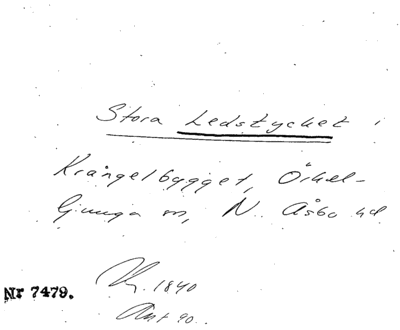 Stora Ledstycket i
Krångelbygget, Örkel-
ljunga sn, N. Åsbo hd
Nr 7479.
1840
Ant 90